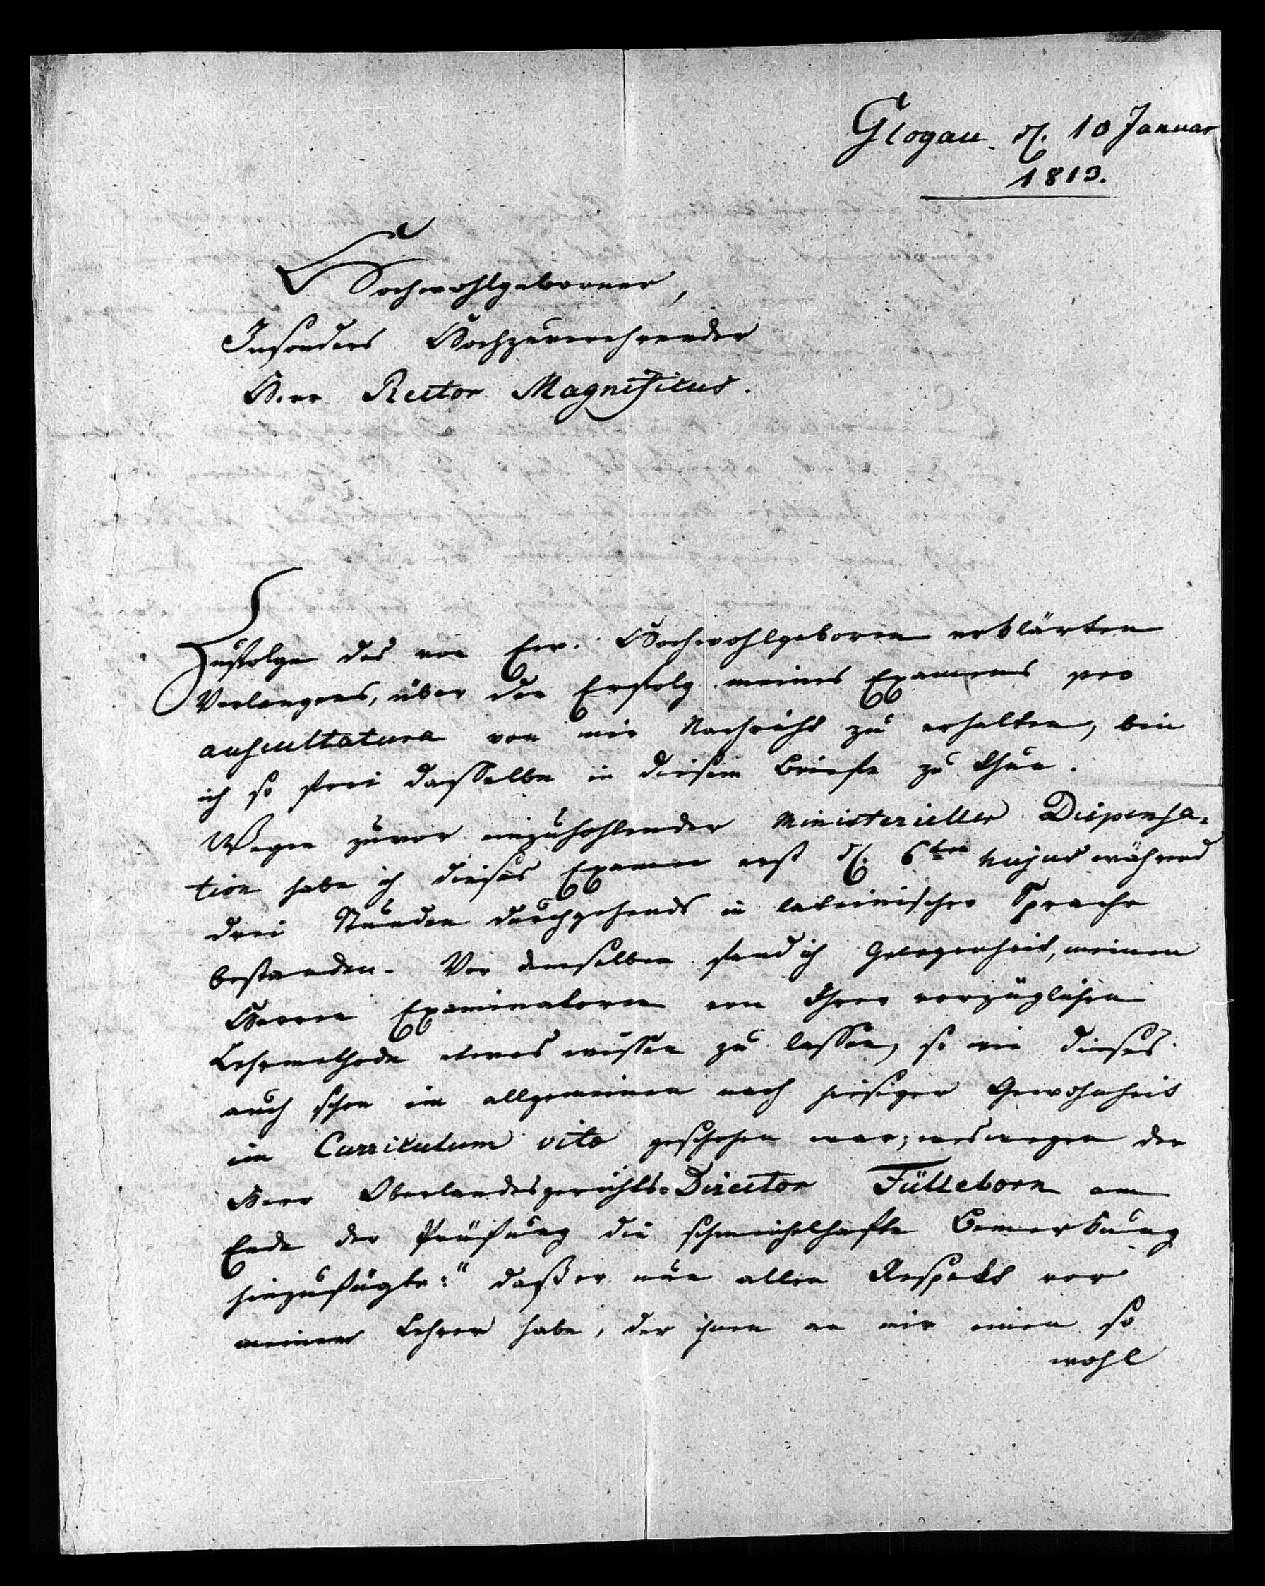 Glogau d. 10 Januar
1813.
Hochwohlgeborner,
Insonders Hochzuverehrender
Herr Rector Magnificus.
Zufolge des von Ew. Hochwohlgeboren erklärten
Verlangens, über den Erfolg meines Examens pro
auscultatura von mir Nachricht zu erhalten, bin
ich so frei dasselbe in diesem Briefe zu thun.
Wegen zuvor einzuhohlender ministerieller Dispensa-
tion habe ich dieses Examen erst d. 6ten hujus während
drei Stunden durchgehends in lateinischer Sprache
bestanden. Vor demselben fand ich Gelegenheit, meinen
Herren Examinatoren von Ihrer vorzüglichen
Lehrmethode etwas wissen zu lassen, so wie dieses
auch schon im allgemeinen nach hiesiger Gewohnheit
im Curriculum vitae geschehen war; weswegen der
Herr Oberlandesgerichts-Director Fülleborn am
Ende der Prüfung die schmeichelhafte Bemerkung
hinzufügte: "daß er nun allen Respekt vor
meinem Lehrer habe, der ihnen an mir einen so
wohl